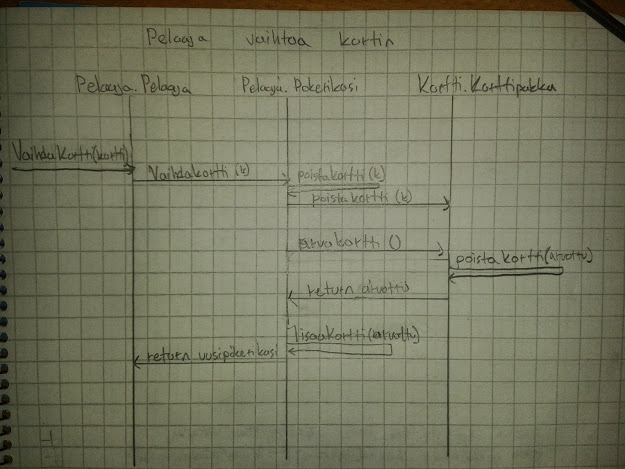 Pelaaja vaihtaa kortin
Pelaaja.Pelaaja Pelaaja.Pokerikäsi Kortti.Korttipakka
VaihdaKortti(kortti)
Vaihdakortti (k)
poistakortti(k)
poistakortti (k)
arvakortti ()
poistakortti(arvottu)
return arvottu
lisaaKortti(arvottu)
return uusipokerikäsi